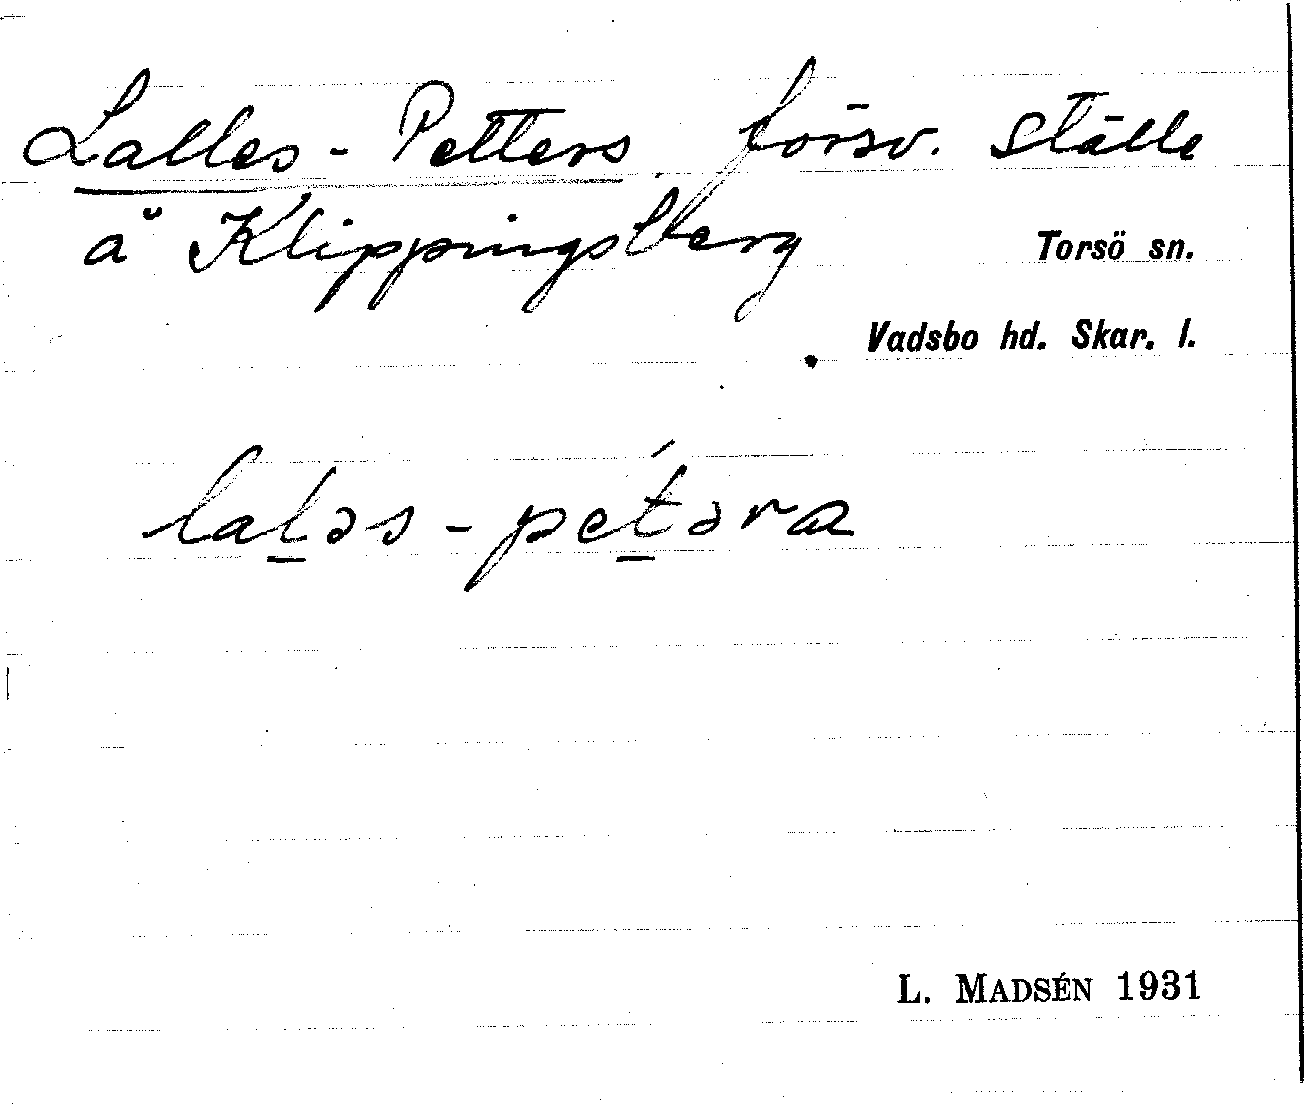 Lalles-Petters försv. ställe
å Klippingsberg
Torsö sn.
Vadsbo hd. Skar. l.
lal̠əs-pét̠əra
L. MADSÉN 1931